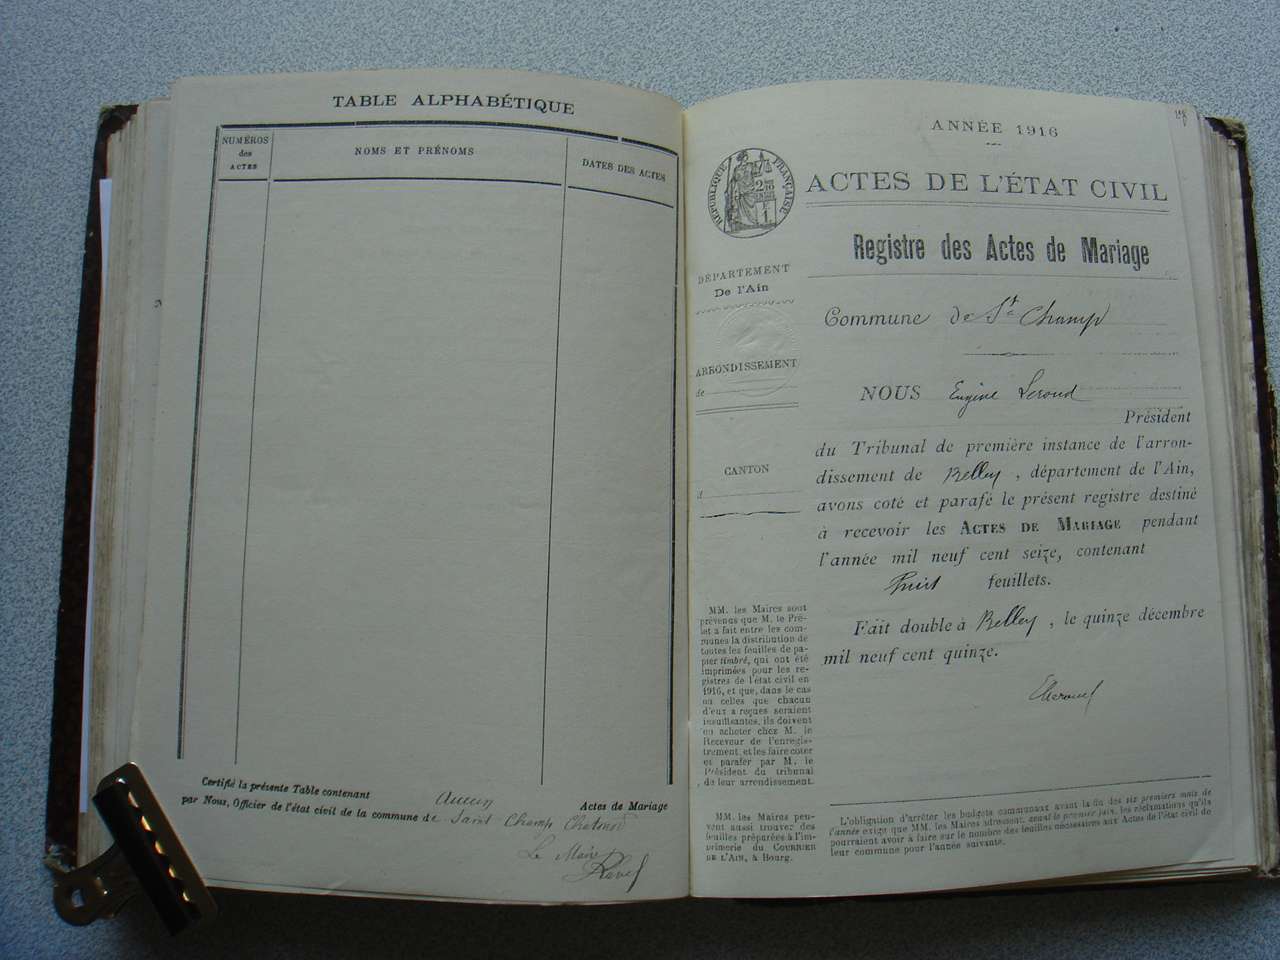 TABLE ALPHABÉTIQUE
NUMÉROS
des
ACTES
NOMS ET PRÉNOMS
DATES DES ACTES
Certifié la présente Table contenant Aucun Actes de Mariage
par Nous, Officier de l'état civil de la commune de Saint Champ Chatonod
Le Maire
ANNÉE 1916
RÉPUBLIQUE FRANÇAISE
ACTES DE L'ÉTAT CIVIL
Registre des Actes de Mariage
DÉPARTEMENT
De l'Ain
ARRONDISSEMENT
de
CANTON
d
MM. les Maires sont
prévenus que M. le Pré-
fet a fait entre les com-
munes la distribution de
toutes les feuilles de pa-
pier timbré, qui ont été
imprimées pour les re-
gistres de l'état civil en
1916, et que, dans le cas
où celles que chacun
d'eux a reçues seraient
insuffisantes, ils doivent
en acheter chez M. le
Receveur de l'enregis-
trement, et les faire coter
et parafer par M. le
Président du tribunal
de leur arrondissement.
MM. les Maires peu-
vent aussi trouver des
feuilles préparées à l'im-
primerie du COURRIER
DE L'AIN, à Bourg.
Commune de St Champ
NOUS Eugène Leroud
Président
du Tribunal de première instance de l'arron-
dissement de Belley, département de l'Ain,
avons coté et parafé le présent registre destiné
à recevoir les ACTES DE MARIAGE pendant
l'année mil neuf cent seize, contenant
huit feuillets.
Fait double à Belley, le quinze décembre
mil neuf cent quinze.
L'obligation d'arrêter les budgets communaux avant la fin des six premiers mois de
l'année exige que MM. les Maires adressent, avant le premier juin, les réclamations qu'ils
pourraient avoir à faire sur le nombre des feuilles nécessaires aux Actes de l'état civil de
leur commune pour l'année suivante.